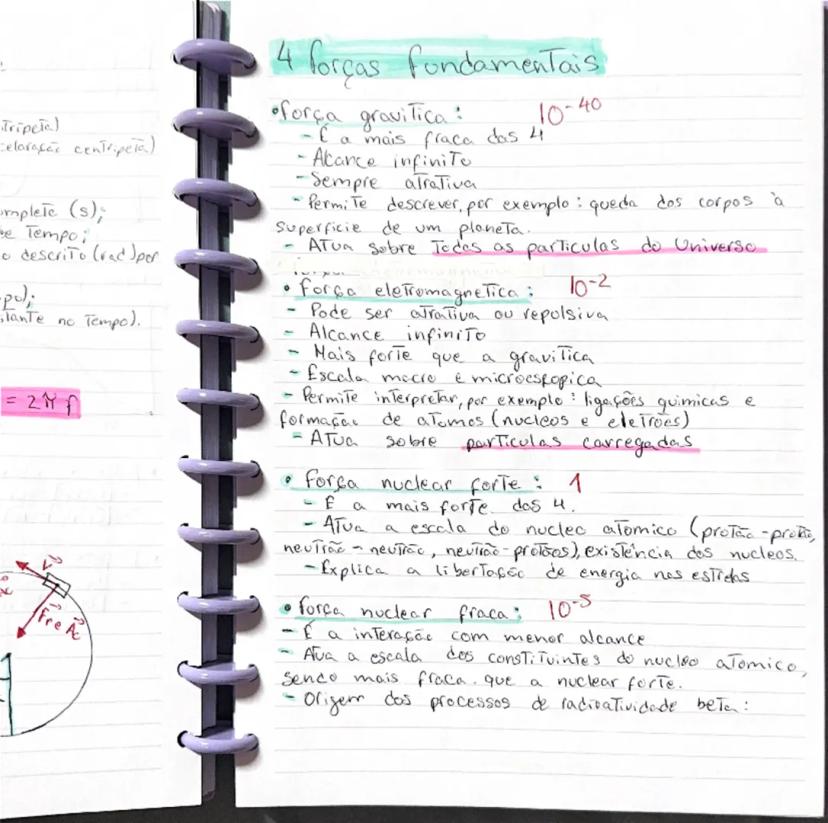 tripeta)
celaração centripeta)
omplete (s);
de tempo;
o descrito (rad) por
po);
ilante no tempo).
= 2π f
v
Fr e Ac
4 forças fundamentais
• força gravitica: 10-40
- É a mais fraca das 4
- Alcance infinito
- Sempre atrativa
- Permite descrever, por exemplo: queda dos corpos à
superficie de um planeta.
- Atua sobre todas as particulas do Universo
• força eletromagnetica: 10-2
- Pode ser atrativa ou repulsiva
- Alcance infinito
- Mais forte que a gravitica
- Escala macro e microescopica
- Permite interpretar, por exemplo: ligações quimicas e
formação de atomos (nucleos e eletrões)
- Atua sobre particulas carregadas
• força nuclear forte: 1
- É a mais forte das 4.
- Atua a escala do nucleo atomico (protão-protão,
neutrão-neutrão, neutrão-protões), existência dos nucleos.
- Explica a libertação de energia nas estrelas
• força nuclear fraca: 10-5
- É a interação com menor alcance
- Atua a escala dos constituintes do nucleo atomico,
sendo mais fraca que a nuclear forte.
- Origem dos processos de radioatividade beta: